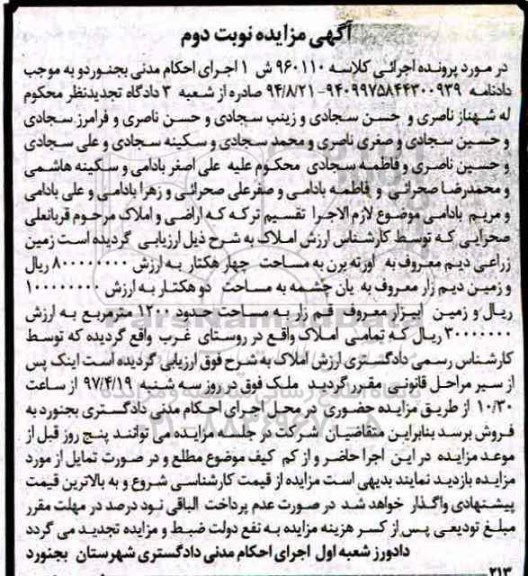 آگهی مزایده نوبت دوم
در مورد پرونده اجرائی کلاسه ۹۶۰۱۱۰ ش ۱ اجرای احکام مدنی بجنورد و به موجب
دادنامه ۹۴۰۹۹۷۵۸۴۴۳۰۰۹۳۹-۹۴/۸/۲۱ صادره از شعبه ۳ دادگاه تجدیدنظر محکوم
له شهناز ناصری و حسن سجادی و زینب سجادی و حسن ناصری و فرامرز سجادی
و حسین سجادی و صغری ناصری و محمد سجادی و سکینه سجادی و علی سجادی
و حسین ناصری و فاطمه سجادی محکوم علیه علی اصغر بادامی و سکینه هاشمی
و محمدرضا صحرائی و فاطمه بادامی و صفرعلی صحرائی و زهرا بادامی و علی بادامی
و مریم بادامی موضوع لازم الاجرا تقسیم ترکه که اراضی و املاک مرحوم قربانعلی
صحرایی که توسط کارشناس ارزش املاک به شرح ذیل ارزیابی گردیده است زمین
زراعی دیم معروف به اوزته یرن به مساحت چهار هکتار به ارزش ۸۰۰۰۰۰۰۰۰ ریال
و زمین دیم زار معروف به یان چشمه به مساحت دو هکتار به ارزش ۱۰۰۰۰۰۰۰۰
ریال و زمین بیزار معروف قم زار به مساحت حدود ۱۲۰۰ مترمربع به ارزش
۳۰۰۰۰۰۰۰ ریال که تمامی املاک واقع در روستای غرب واقع گردیده که توسط
کارشناس رسمی دادگستری ارزش املاک به شرح فوق ارزیابی گردیده است اینک پس
از سیر مراحل قانونی مقرر گردید ملک فوق در روز سه شنبه ۹۷/۴/۱۹ از ساعت
۱۰/۳۰ از طریق مزایده حضوری در محل اجرای احکام مدنی دادگستری بجنورد به
فروش برسد بنابراین متقاضیان شرکت در جلسه مزایده می توانند پنج روز قبل از
موعد مزایده در این اجرا حاضر و از کم کیف موضوع مطلع و در صورت تمایل از مورد
مزایده بازدید نمایند بدیهی است مزایده از قیمت کارشناسی شروع و به بالاترین قیمت
پیشنهادی واگذار خواهد شد در صورت عدم پرداخت الباقی نود درصد در مهلت مقرر
مبلغ تودیعی پس از کسر هزینه مزایده به نفع دولت ضبط و مزایده تجدید می گردد
دادورز شعبه اول اجرای احکام مدنی دادگستری شهرستان بجنورد
۲۱۳